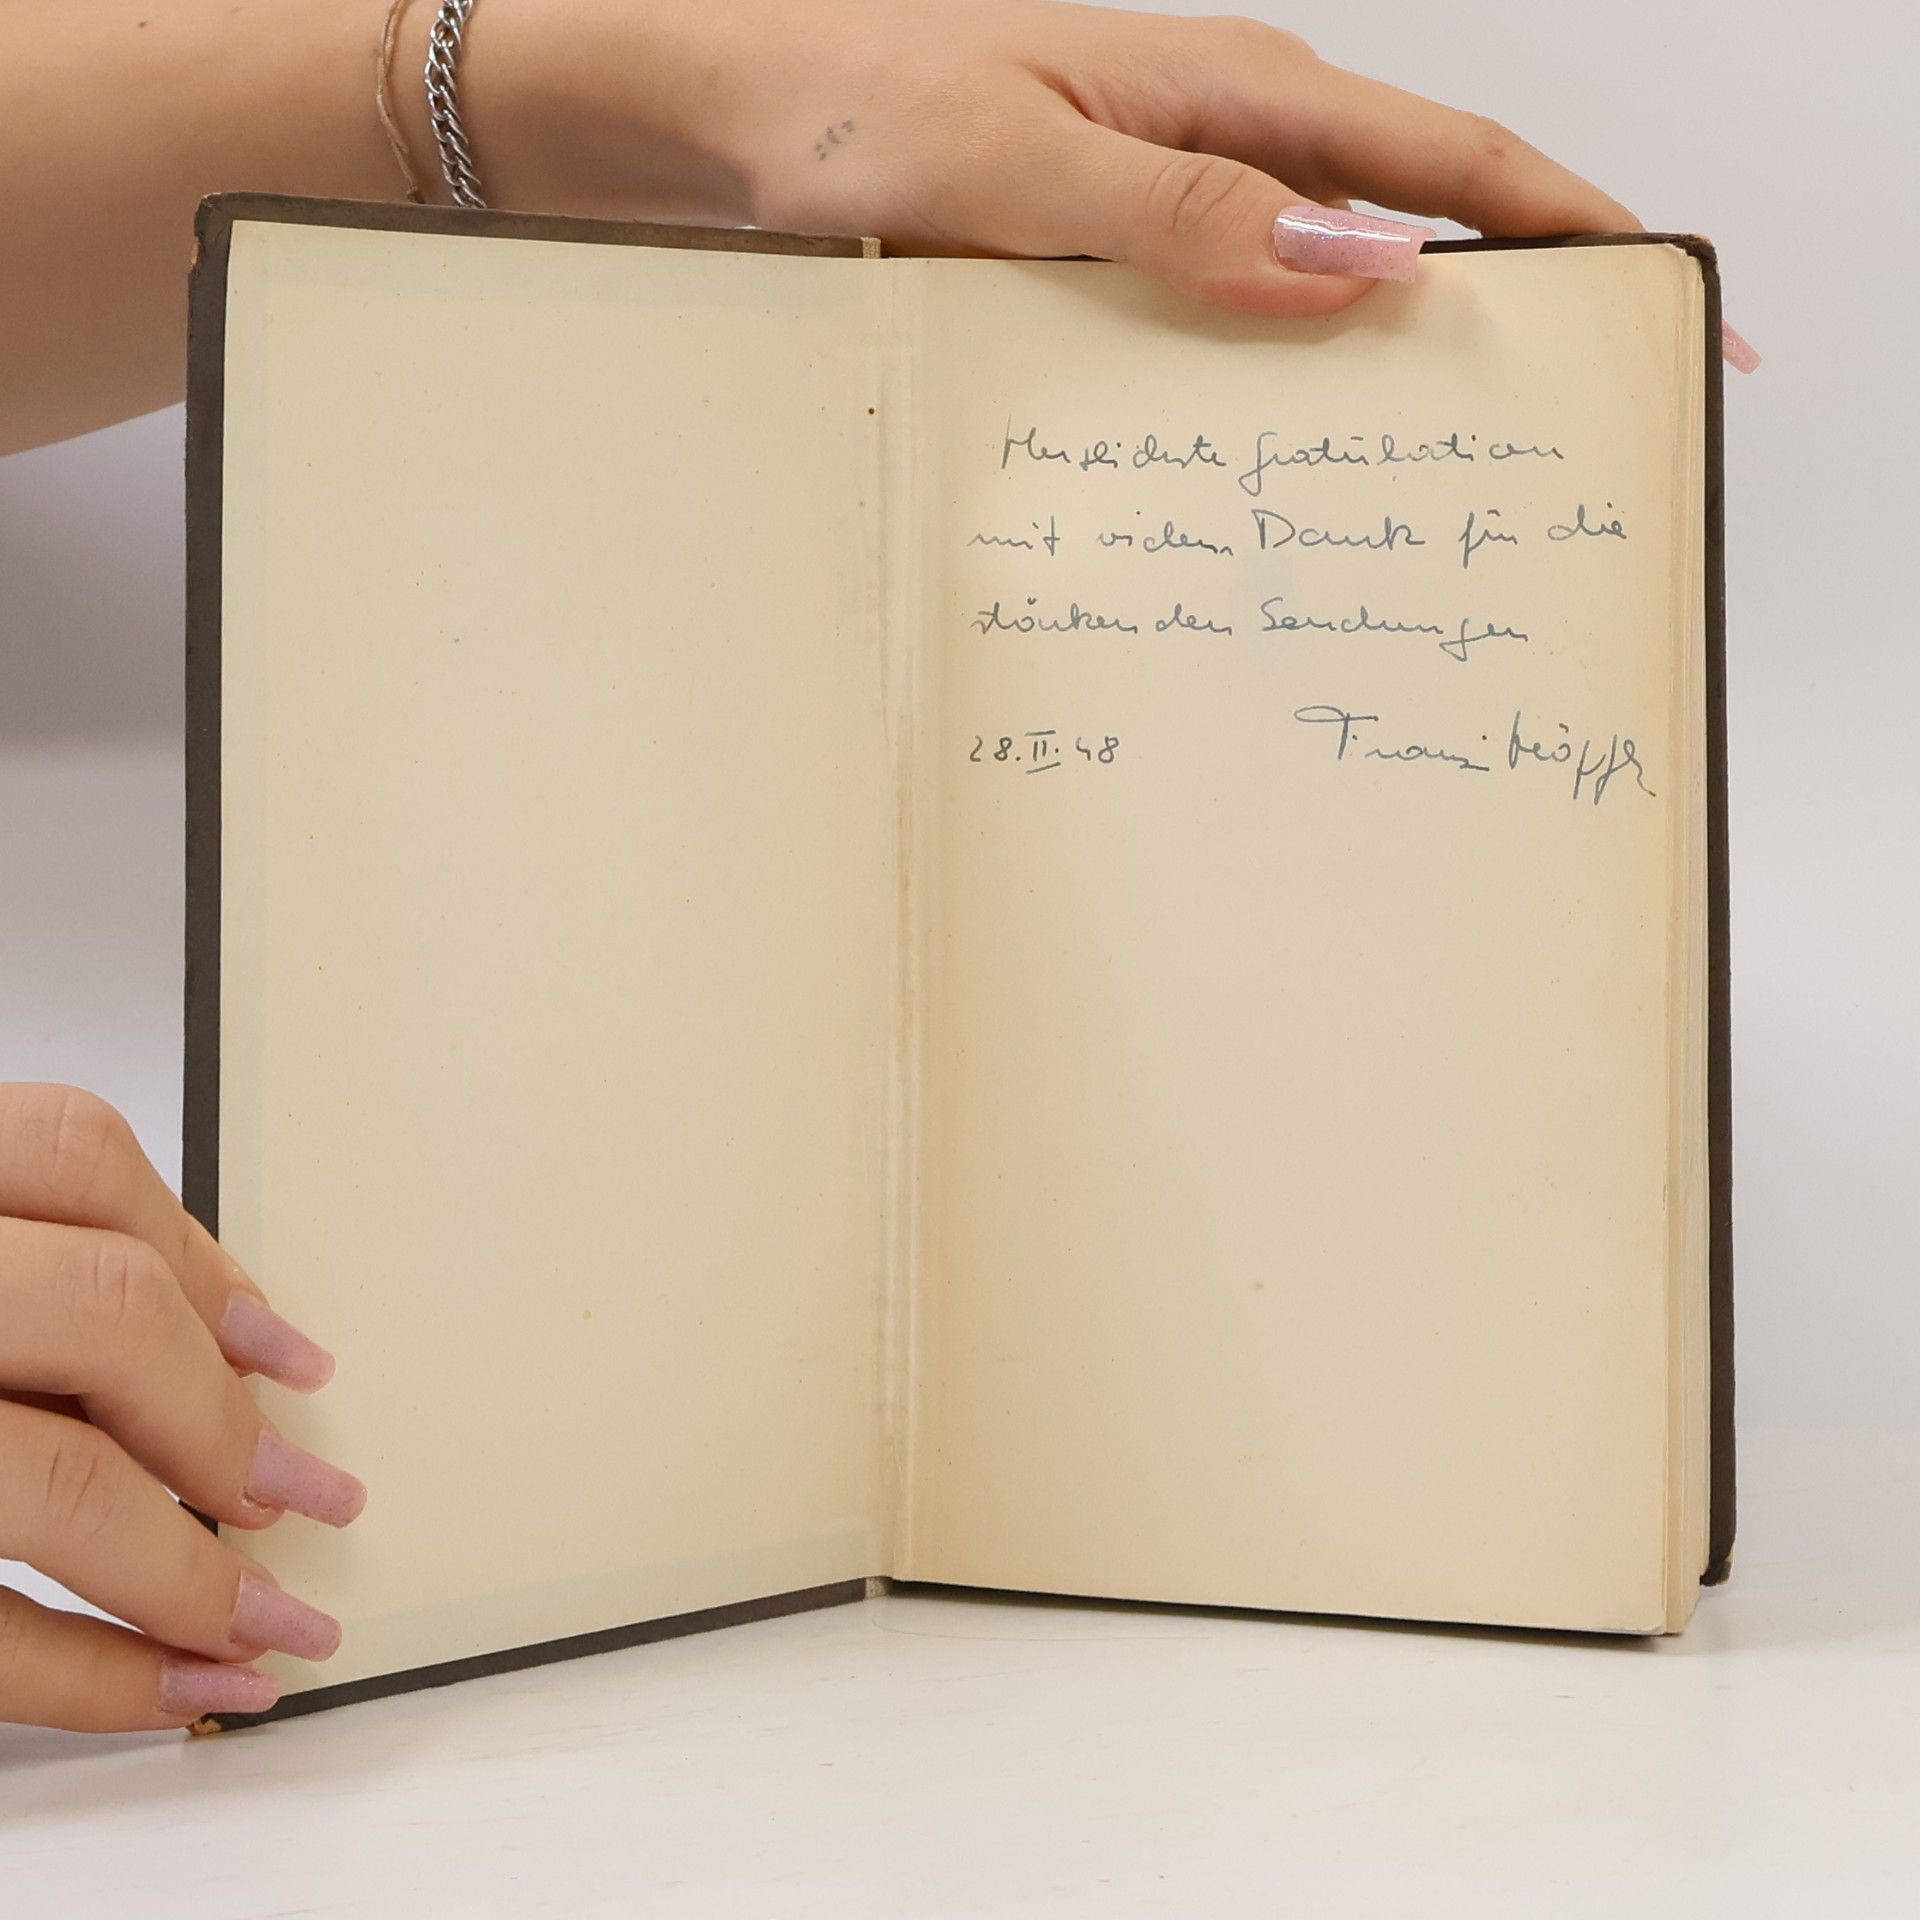 Herzlichste Gratulation
mit vielem Dank für die
stärkenden Sendungen
28.II.48 Franz